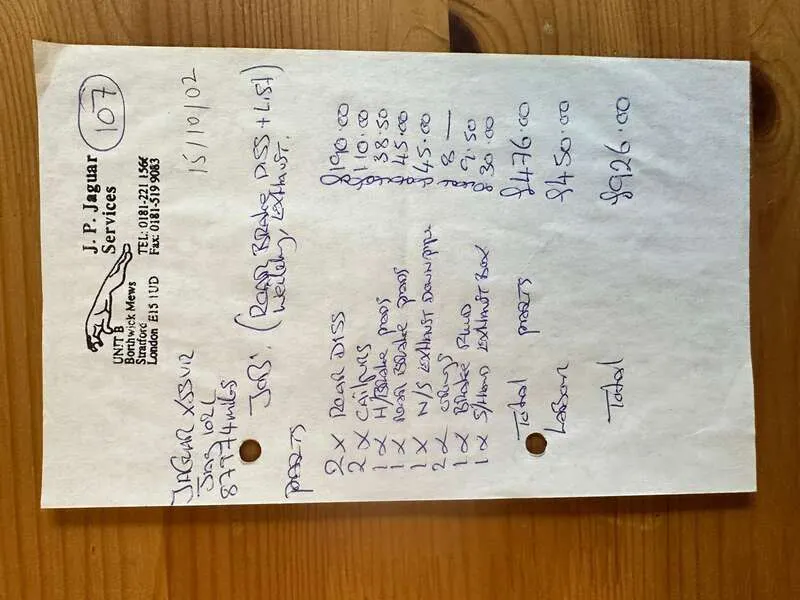 J. P. Jaguar
Services
107
UNIT B
Borthwick Mews
Stratford
London E15 1UD
TEL: 0181-221 1566
Fax: 0181-519 9083
JAGUAR XJSV12
87974 miles
15/10/02
JOB: (REAR BRAKE DISS + LIST)
welding, EXHAUST.
PARTS
2 x REAR DISS £190.00
2 x Calipers £110.00
1 x H/Brake pads £38.50
1 x Rear Brake pads £45.00
1 x N/S Exhaust Downpipe £45.00
2 x 8 —
1 x Brake Fluid 9.50
1 x S/Hand Exhaust Box £30.00
Total parts £476.00
Labour £450.00
Total £926.00